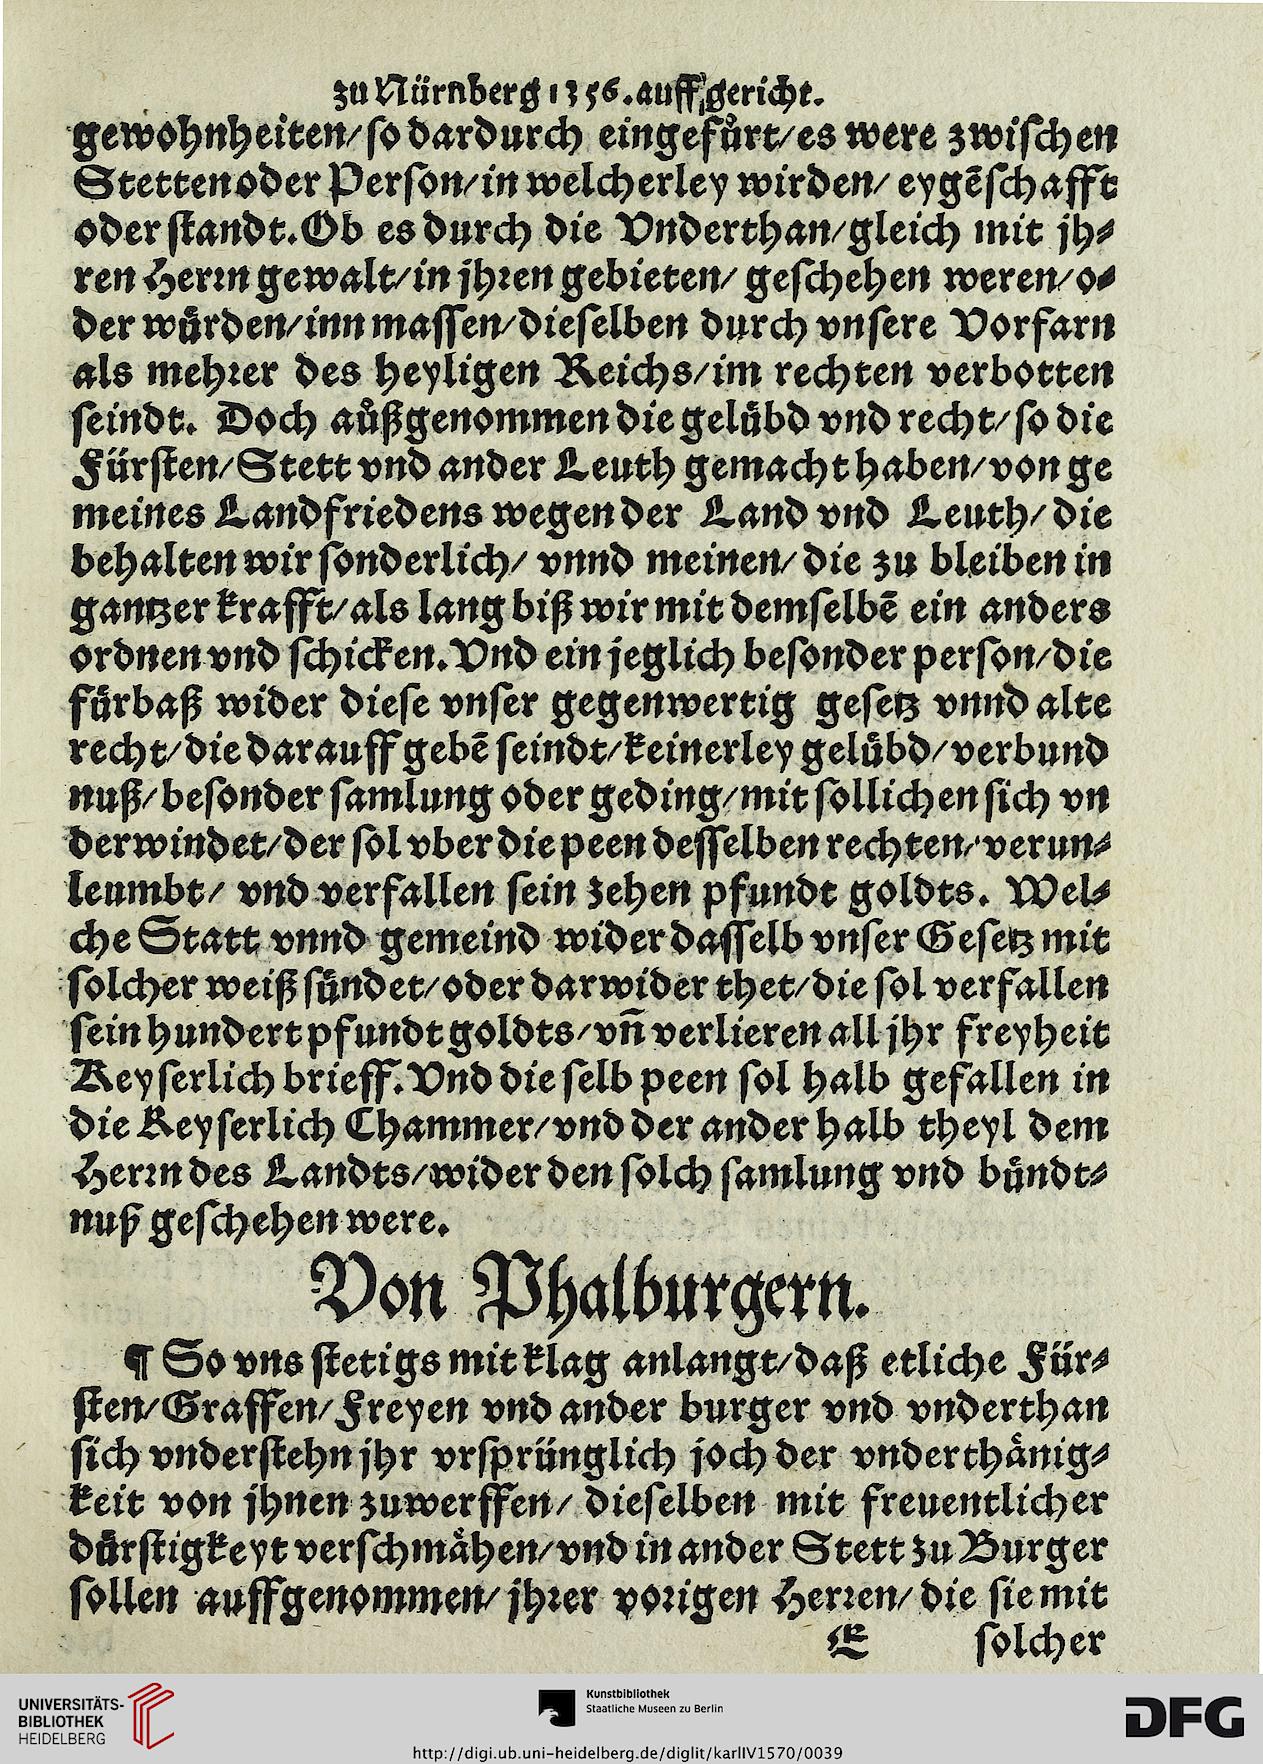 zu Nürnberg 1356. auff gericht.
gewohnheiten/ so dardurch eingefůrt/ es were zwischen
Stetten oder Person/ in welcherley wirden/ eygēschafft
oder standt. Ob es durch die Vnderthan/ gleich mit jh-
ren Herrn gewalt/ in jhren gebieten/ geschehen weren/ o-
der würden/ inn massen/ dieselben durch vnsere Vorfarn
als mehrer des heyligen Reichs/ im rechten verbotten
seindt. Doch aůßgenommen die gelübd vnd recht/ so die
Fürsten/ Stett vnd ander Leuth gemacht haben/ von ge
meines Landfriedens wegen der Land vnd Leuth/ die
behalten wir sonderlich/ vnnd meinen/ die zu bleiben in
gantzer krafft/ als lang biß wir mit demselbē ein anders
ordnen vnd schicken. Vnd ein jeglich besonder person/ die
fürbaß wider diese vnser gegenwertig gesetz vnnd alte
recht/ die darauff gebē seindt/ keinerley gelübd/ verbund
nuß/ besonder samlung oder geding/ mit sollichen sich vn
derwindet/ der sol vber die peen desselben rechten/ verun-
leumbt/ vnd verfallen sein zehen pfundt goldts. Wel-
che Statt vnnd gemeind wider dasselb vnser Gesetz mit
solcher weiß sündet/ oder darwider thet/ die sol verfallen
sein hundert pfundt goldts/ vñ verlieren all jhr freyheit
Keyserlich brieff. Vnd die selb peen sol halb gefallen in
die Keyserlich Chammer/ vnd der ander halb theyl dem
Herrn des Landts/ wider den solch samlung vnd bündt-
nuß geschehen were.
Von Phalburgern.
¶ So vns stetigs mit klag anlangt/ daß etliche Für-
sten/ Graffen/ Freyen vnd ander burger vnd vnderthan
sich vnderstehn jhr vrsprünglich joch der vnderthänig-
keit von jhnen zuwerffen/ dieselben mit freuentlicher
dürstigkeyt verschmähen/ vnd in ander Stett zu Burger
sollen auffgenommen/ jhrer vorigen Herren/ die sie mit
E solcher
UNIVERSITÄTS-
BIBLIOTHEK
HEIDELBERG
Kunstbibliothek
Staatliche Museen zu Berlin
DFG
http://digi.ub.uni-heidelberg.de/diglit/karlIV1570/0039